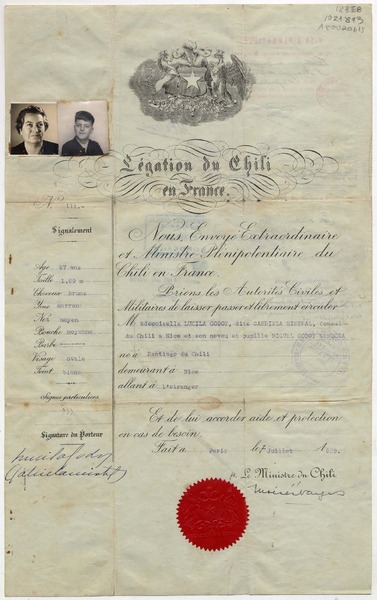 Légation du Chili
en France.
N° 111.-
Signalement
Age 47 ans
Taille
Cheveux bruns
Yeux marrons
Nez moyen
Bouche moyenne
Barbe
Visage ovale
Teint blanc
Signes particulières
Signature du Porteur
Gabriela Mistral
Nous, Envoyé Extraordinaire
et Ministre Plénipotentiaire du
Chili en France.
Prions les Autorités Civiles et
Militaires de laisser passer et librement circuler
M ademoiselle LUCILA GODOY, dite GABRIELA MISTRAL, Consul
du Chili à Nice et son neveu et pupille MIGUEL GODOY MENDOZA
né à Santiago du Chili
demeurant à Nice
allant à l'étranger
Et de lui accorder aide et protection
en cas de besoin.
Fait à Paris le 7 Juillet
Le Ministre du Chili